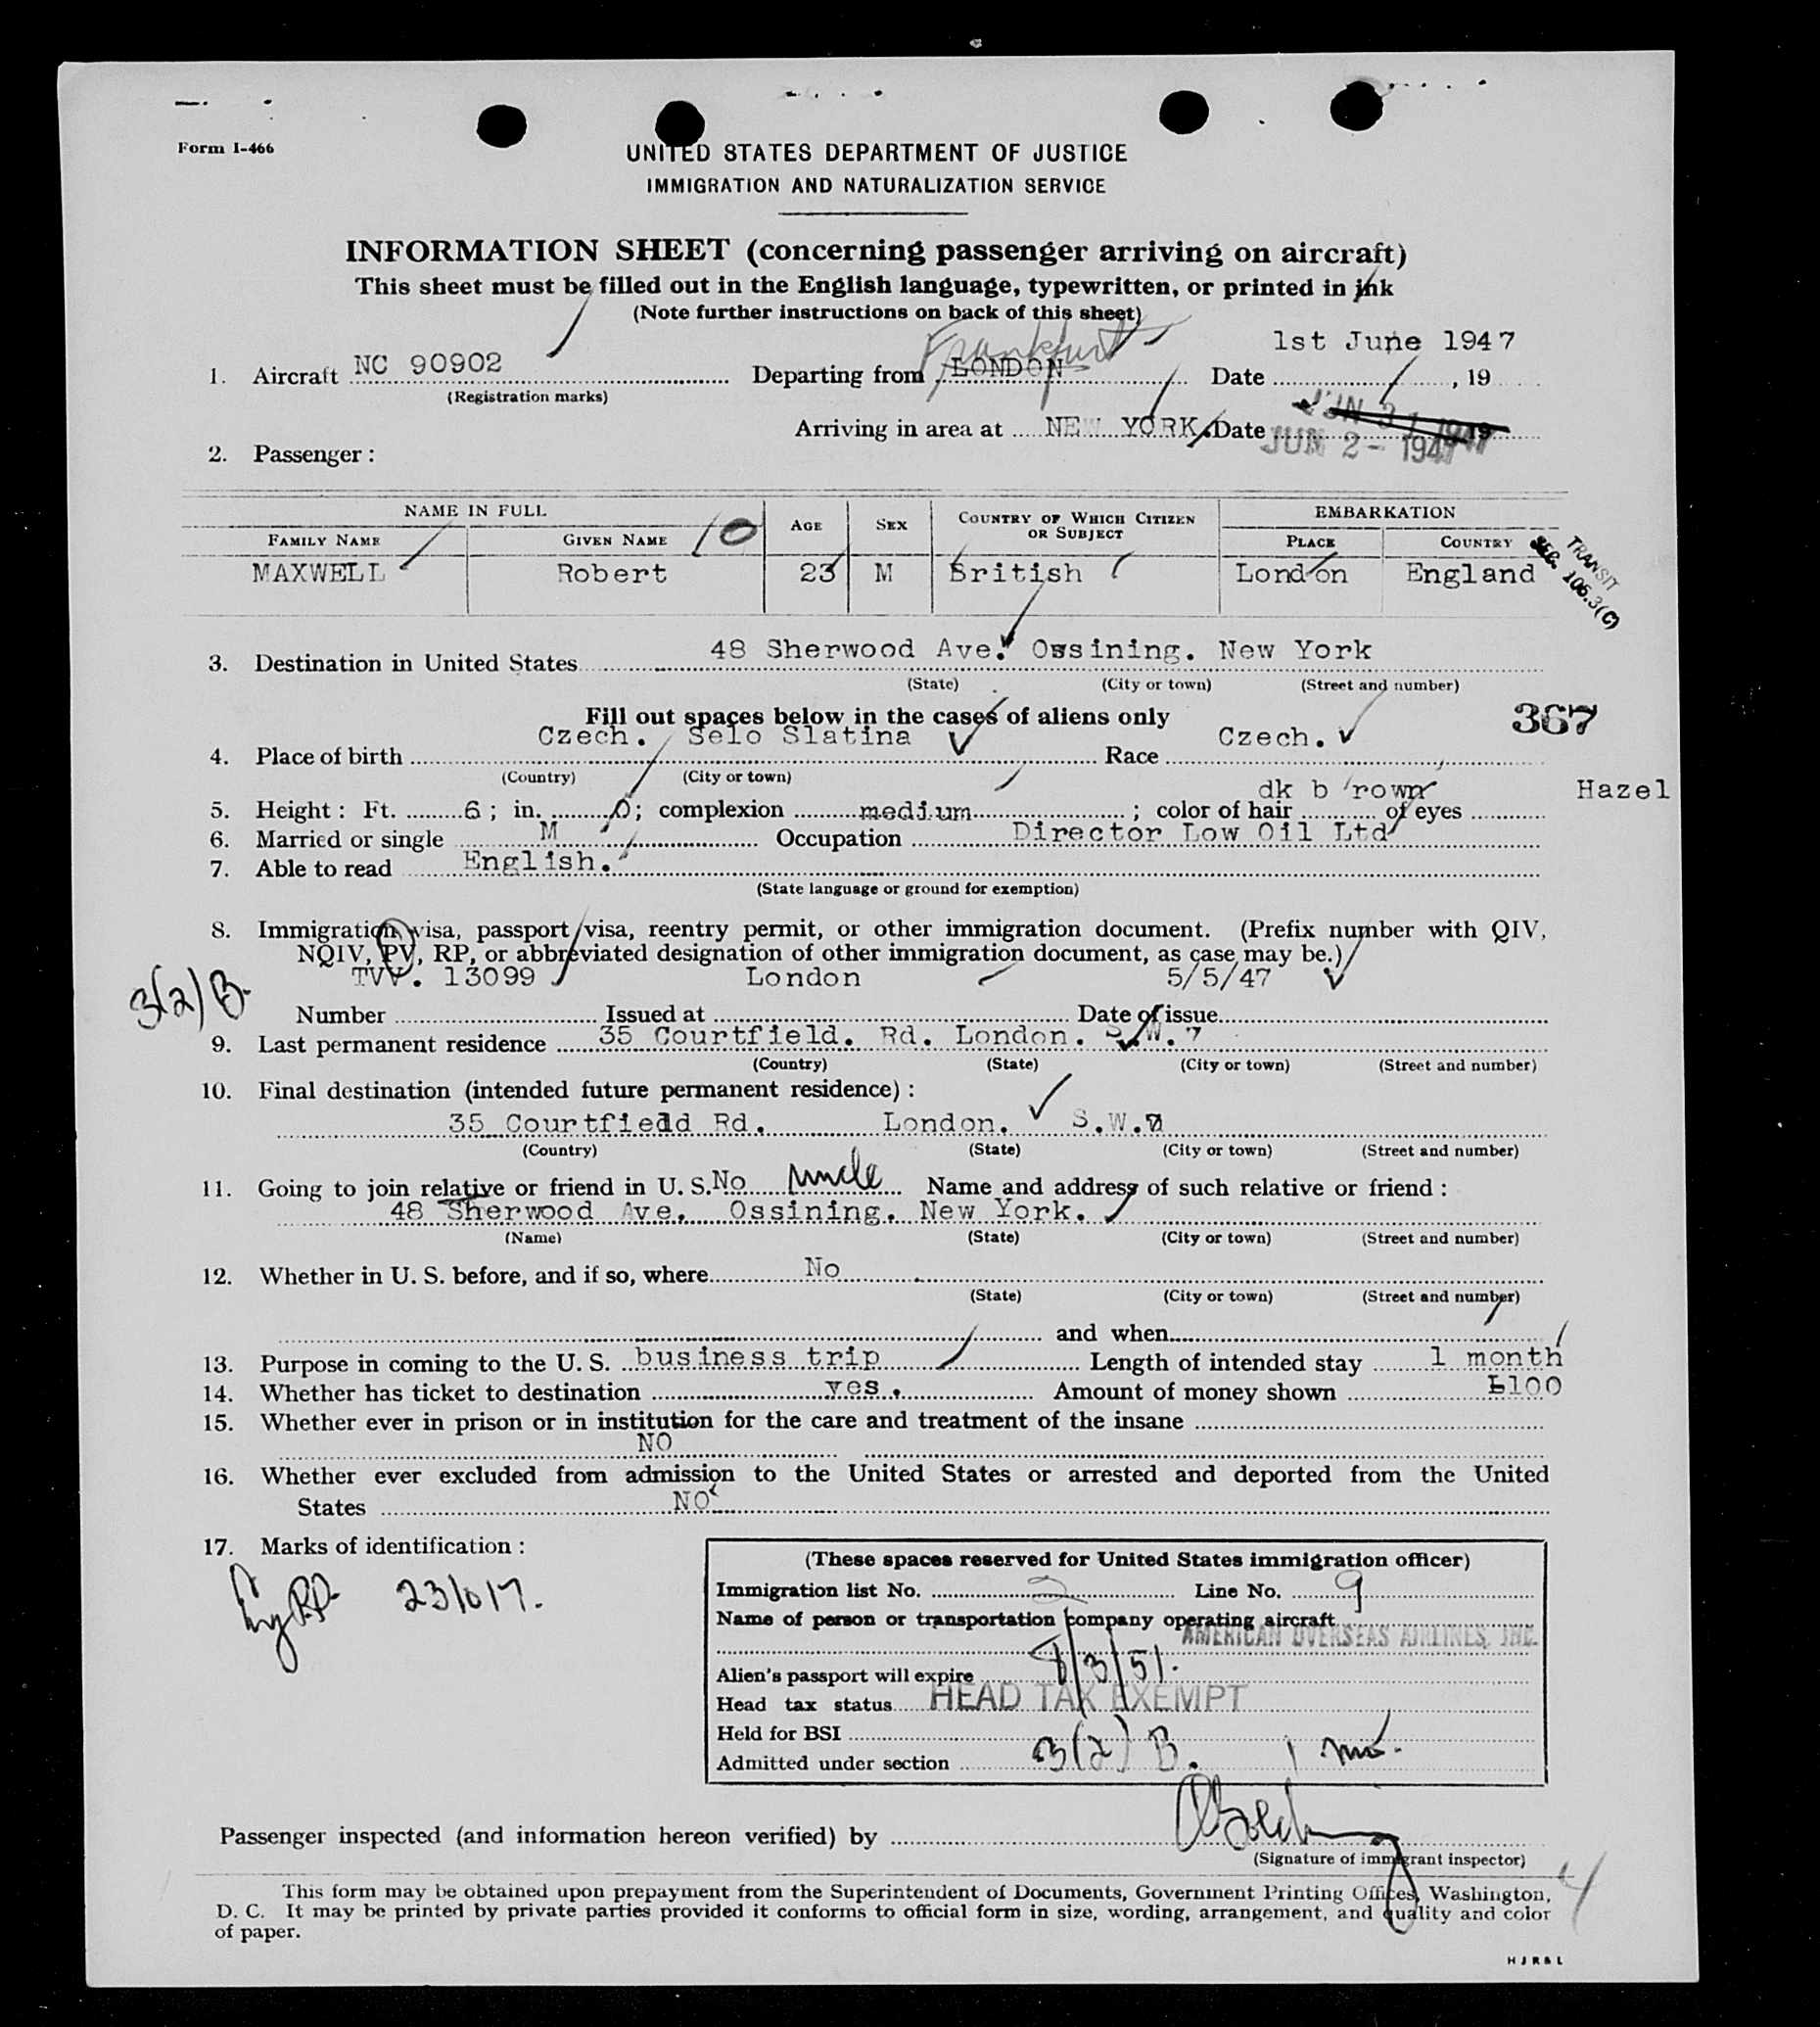 Form I-466
UNITED STATES DEPARTMENT OF JUSTICE
IMMIGRATION AND NATURALIZATION SERVICE
INFORMATION SHEET (concerning passenger arriving on aircraft)
This sheet must be filled out in the English language, typewritten, or printed in ink
(Note further instructions on back of this sheet)
Frankfurt
1st June 1947
1. Aircraft NC 90902 Departing from LONDON Date , 19
(Registration marks)
Arriving in area at NEW YORK Date JUN 2 - 1947
2. Passenger :
NAME IN FULL AGE SEX COUNTRY OF WHICH CITIZEN OR SUBJECT EMBARKATION
FAMILY NAME GIVEN NAME 10 PLACE COUNTRY
MAXWELL Robert 23 M British London England
TRANSIT
SEC. 106.3(C)
3. Destination in United States 48 Sherwood Ave. Ossining. New York
(State) (City or town) (Street and number)
Fill out spaces below in the cases of aliens only
367
4. Place of birth Czech. Selo Slatina Race Czech.
(Country) (City or town)
5. Height : Ft. 6 ; in. 0 ; complexion medium ; color of hair dk b rown of eyes Hazel
6. Married or single M Occupation Director Low Oil Ltd
7. Able to read English.
(State language or ground for exemption)
8. Immigration visa, passport visa, reentry permit, or other immigration document. (Prefix number with QIV,
NQIV, PV, RP, or abbreviated designation of other immigration document, as case may be.)
3(2)B.
TVV. 13099 London 5/5/47
Number Issued at Date of issue
9. Last permanent residence 35 Courtfield. Rd. London. S.W.7
(Country) (State) (City or town) (Street and number)
10. Final destination (intended future permanent residence) :
35 Courtfiedd Rd. London. S.W.7
(Country) (State) (City or town) (Street and number)
11. Going to join relative or friend in U. S. No uncle Name and address of such relative or friend :
48 Sherwood Ave. Ossining. New York.
(Name) (State) (City or town) (Street and number)
12. Whether in U. S. before, and if so, where No
(State) (City or town) (Street and number)
and when
13. Purpose in coming to the U. S. business trip Length of intended stay 1 month
14. Whether has ticket to destination yes. Amount of money shown £100
15. Whether ever in prison or in institution for the care and treatment of the insane
NO
16. Whether ever excluded from admission to the United States or arrested and deported from the United
States NO
17. Marks of identification :
(These spaces reserved for United States immigration officer)
Immigration list No. 2 Line No. 9
Name of person or transportation company operating aircraft
AMERICAN OVERSEAS AIRLINES, INC.
Alien's passport will expire 8/3/51.
Head tax status HEAD TAX EXEMPT
Held for BSI
Admitted under section 3(2) B. 1 mo.
Passenger inspected (and information hereon verified) by
(Signature of immigrant inspector)
4
This form may be obtained upon prepayment from the Superintendent of Documents, Government Printing Offices, Washington,
D. C. It may be printed by private parties provided it conforms to official form in size, wording, arrangement, and quality and color
of paper.
H J R & L